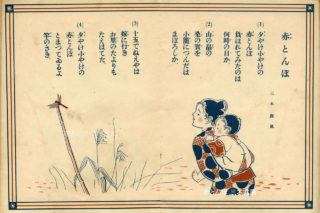 赤とんぼ
三木露風
(1)
夕やけ小やけの
赤とんぼ
負はれてみたのは
何時の日か。
(2)
山の畑の
桑の実を
小籠につんだは
まぼろしか。
(3)
十五でねえやは
嫁に行き
お里のたよりも
たえはてた。
(4)
夕やけ小やけの
赤とんぼ
とまつてゐるよ
竿のさき。